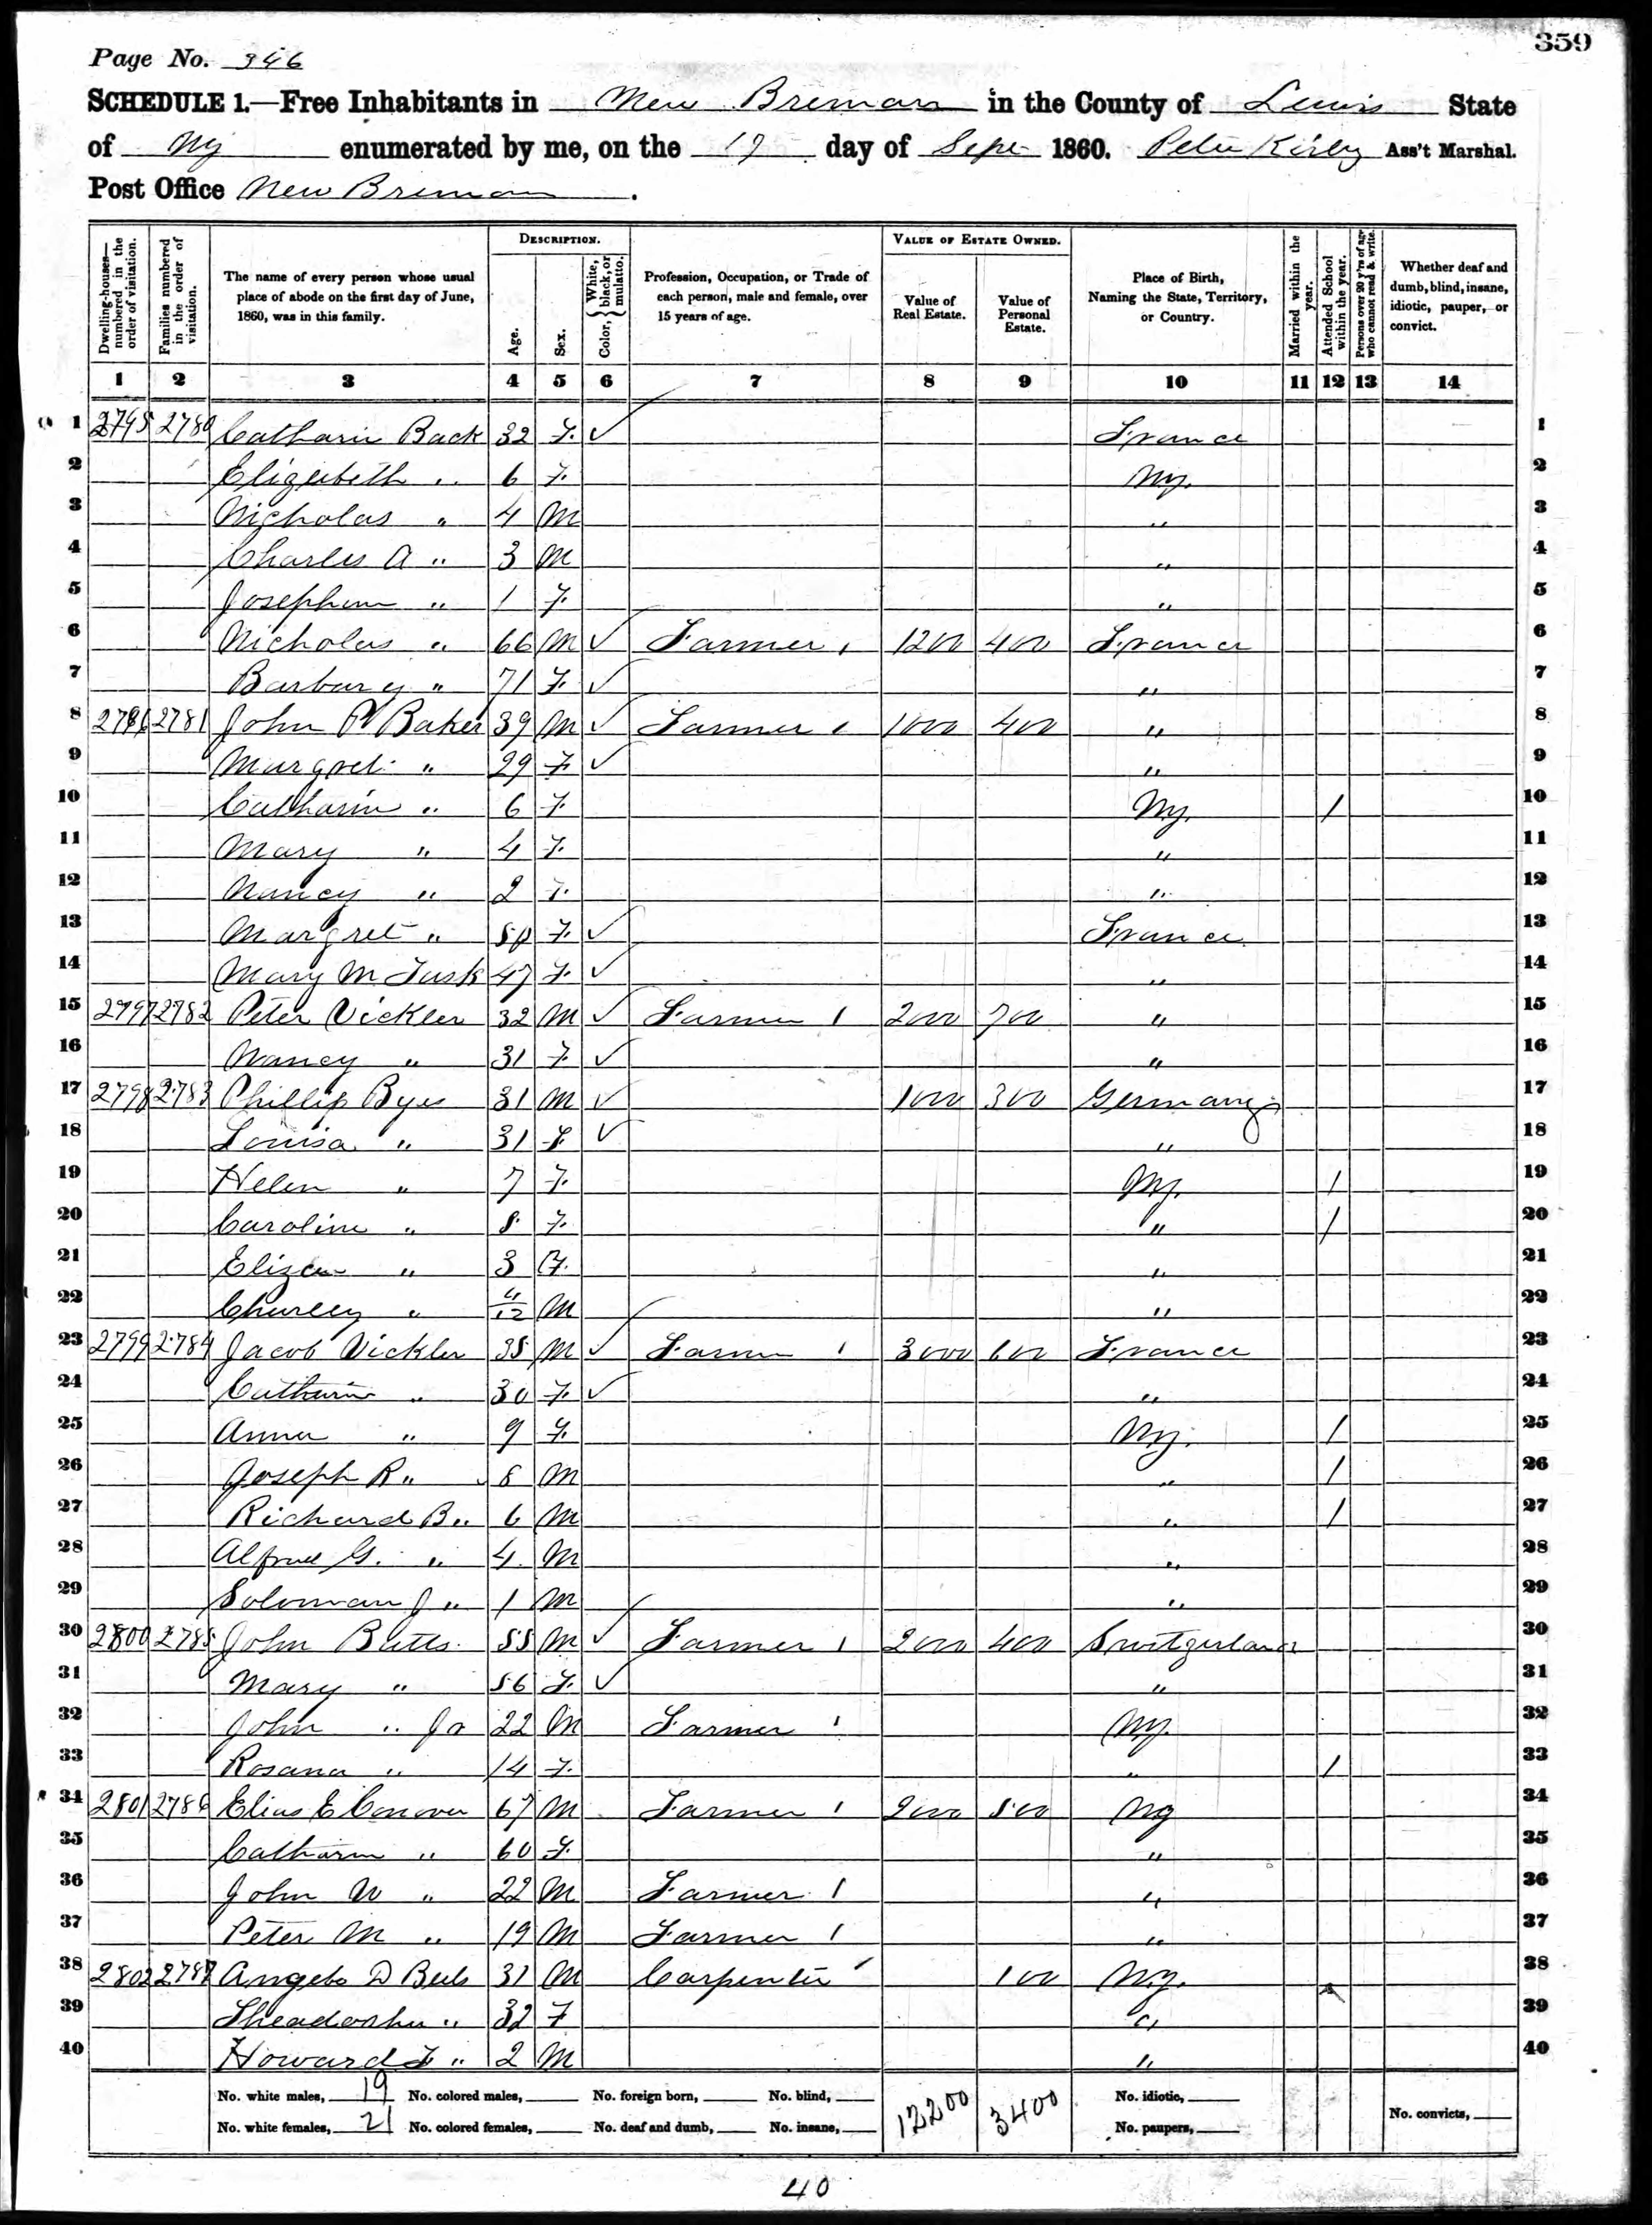 359
Page No. 346
SCHEDULE 1.—Free Inhabitants in New Breman in the County of Lewis State
of Ny enumerated by me, on the 17 day of Sept 1860. Peter Kirley Ass't Marshal.
Post Office New Breman.
Dwelling-houses—numbered in the order of visitation.
Families numbered in the order of visitation.
The name of every person whose usual place of abode on the first day of June, 1860, was in this family.
DESCRIPTION.
Age.
Sex.
Color, {White, black, or mulatto.
Profession, Occupation, or Trade of each person, male and female, over 15 years of age.
VALUE OF ESTATE OWNED.
Value of Real Estate.
Value of Personal Estate.
Place of Birth, Naming the State, Territory, or Country.
Married within the year.
Attended School within the year.
Persons over 20 y'rs of age who cannot read & write.
Whether deaf and dumb, blind, insane, idiotic, pauper, or convict.
1 2 3 4 5 6 7 8 9 10 11 12 13 14
1 2795 2780 Catharin Back 32 F. ✓ France 1
2 Elizabeth " 6 F. Ny. 2
3 Nicholas " 4 M " 3
4 Charles A " 3 M " 4
5 Josephine " 1 F. " 5
6 Nicholas " 66 M ✓ Farmer 1 1200 400 France 6
7 Barbary " 71 F. ✓ " 7
8 2796 2781 John P Baker 39 M ✓ Farmer 1 1000 400 " 8
9 Margret " 29 F ✓ " 9
10 Catharin " 6 F. Ny. / 10
11 Mary " 4 F. " 11
12 Nancy " 2 F. " 12
13 Margret " F. ✓ France 13
14 Mary M 47 F. ✓ " 14
15 2797 2782 Peter Vickler 32 M ✓ Farmer 1 2000 700 " 15
16 Nancy " 31 F. ✓ " 16
17 2798 2783 Phillip Byes 31 M ✓ 1000 300 Germany 17
18 Louisa " 31 F ✓ " 18
19 Helen " 7 F. Ny. / 19
20 Caroline " 8 F. " / 20
21 Eliza " 3 F. " 21
22 Charley " 4/12 M " 22
23 2799 2784 Jacob Vickler 35 M ✓ Farmer 1 3000 600 France 23
24 Catharin " 30 F. ✓ " 24
25 Anna " 9 F. Ny. / 25
26 Joseph R " 8 M " / 26
27 Richard B " 6 M " / 27
28 Alfred G. " 4 M " 28
29 Soloman J " 1 M " 29
30 2800 2785 John Butts 55 M ✓ Farmer 1 2000 400 Switzerland 30
31 Mary " 56 F. ✓ " 31
32 John " Jr 22 M Farmer 1 Ny. 32
33 Rosana " 14 F. " / 33
34 2801 2786 Elias E Conover 67 M Farmer 1 2000 500 Ny 34
35 Catharin " 60 F. " 35
36 John W " 22 M Farmer 1 " 36
37 Peter M " 19 M Farmer 1 " 37
38 2802 2787 Angelo D 31 M Carpenter 100 Ny. 38
39 " 32 F " 39
40 Howard " 2 M " 40
No. white males, 19 No. colored males, No. foreign born, No. blind, 12200 3400 No. idiotic,
No. white females, 21 No. colored females, No. deaf and dumb, No. insane, No. paupers, No. convicts,
40